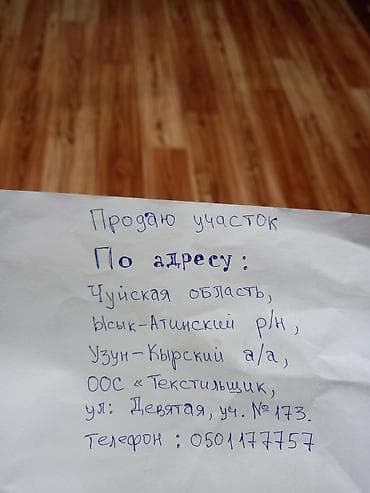 Продаю участок
По адресу:
Чуйская область,
Ысык-Атинский р/н,
Узун-Кырский а/а,
ООС «Текстильщик,
ул: Девятая, уч. № 173.
телефон : 0501177757